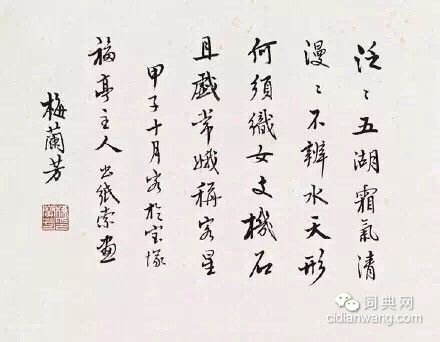 泛〻五湖霜氣清
漫〻不辨水天形
何須織女支機石
且戲常娥稱客星
甲子十月客於宝塚
福亭主人出紙索畫
梅蘭芳
词典网
cidianwang.com